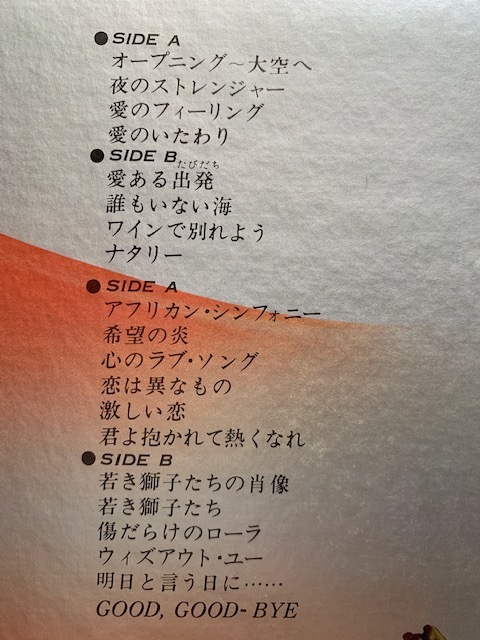 ● SIDE A
オープニング〜大空へ
夜のストレンジャー
愛のフィーリング
愛のいたわり
● SIDE B
たびだち
愛ある出発
誰もいない海
ワインで別れよう
ナタリー
● SIDE A
アフリカン・シンフォニー
希望の炎
心のラブ・ソング
恋は異なもの
激しい恋
君よ抱かれて熱くなれ
● SIDE B
若き獅子たちの肖像
若き獅子たち
傷だらけのローラ
ウィズアウト・ユー
明日と言う日に……
GOOD, GOOD-BYE